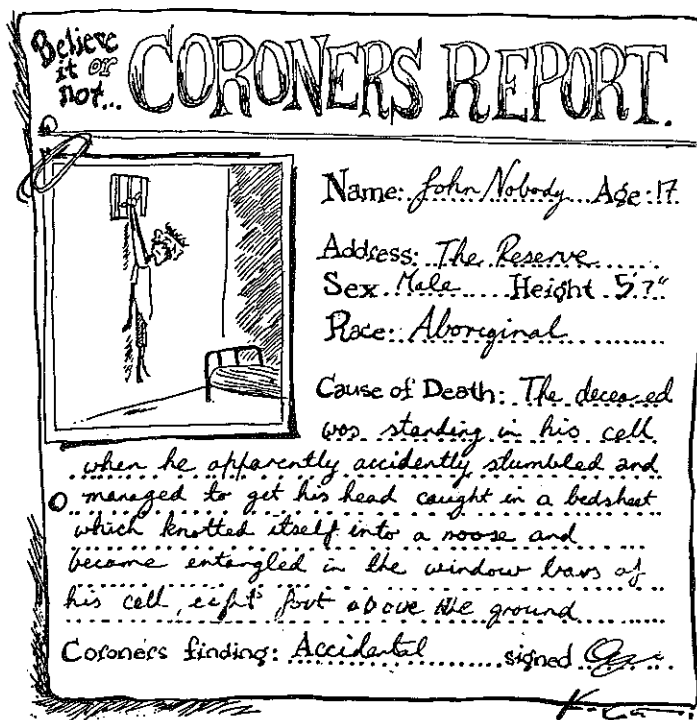 Believe
it or
not...
CORONERS REPORT.
Name: John Nobody Age: 17
Address: The Reserve
Sex Male Height 5'7"
Race: Aboriginal
Cause of Death: The deceased
was standing in his cell
when he apparently accidently stumbled and
managed to get his head caught in a bedsheet
which knotted itself into a noose and
became entangled in the window bars of
his cell, eight foot above the ground
Coroners finding: Accidental signed